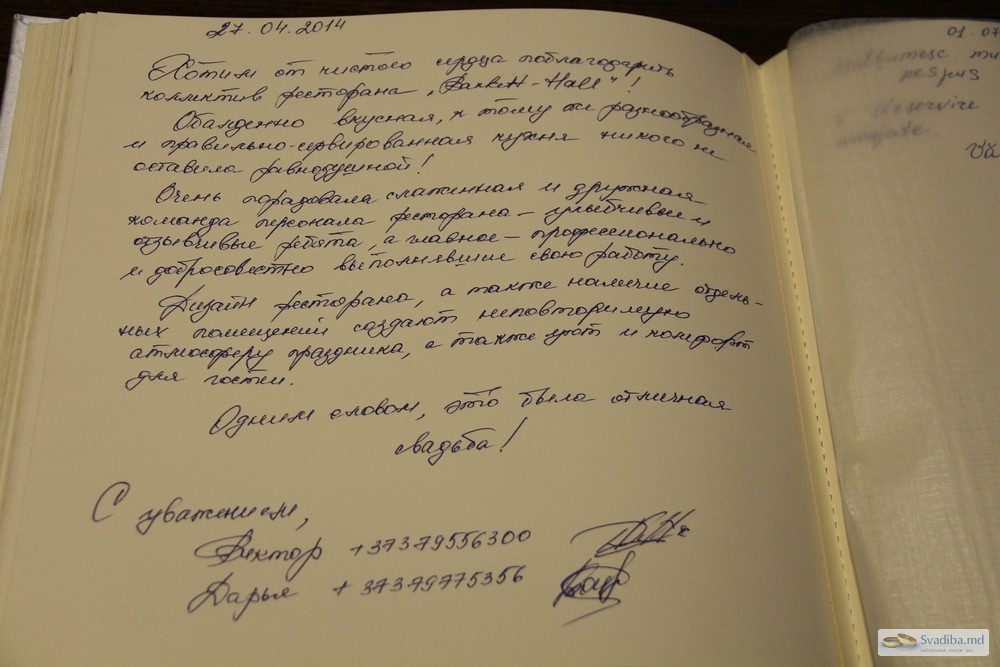 27.04.2014
Хотим от чистого сердца поблагодарить
коллектив ресторана „Barlett-Hall“!
Обалденно вкусная, к тому же разнообразная
и правильно-сервированная кухня никого не
оставила равнодушной!
Очень порадовала слаженная и дружная
команда персонала ресторана – улыбчивые и
отзывчивые ребята, а главное – профессионально
и добросовестно выполнявшие свою работу.
Дизайн ресторана, а также наличие отдель-
ных помещений создают неповторимую
атмосферу праздника, а также уют и комфорт
для гостей.
Одним словом, это была отличная
свадьба!
С уважением,
Виктор +37379556300
Дарья +37379775356
01.07
mu
respus
deservire
Svadiba.md